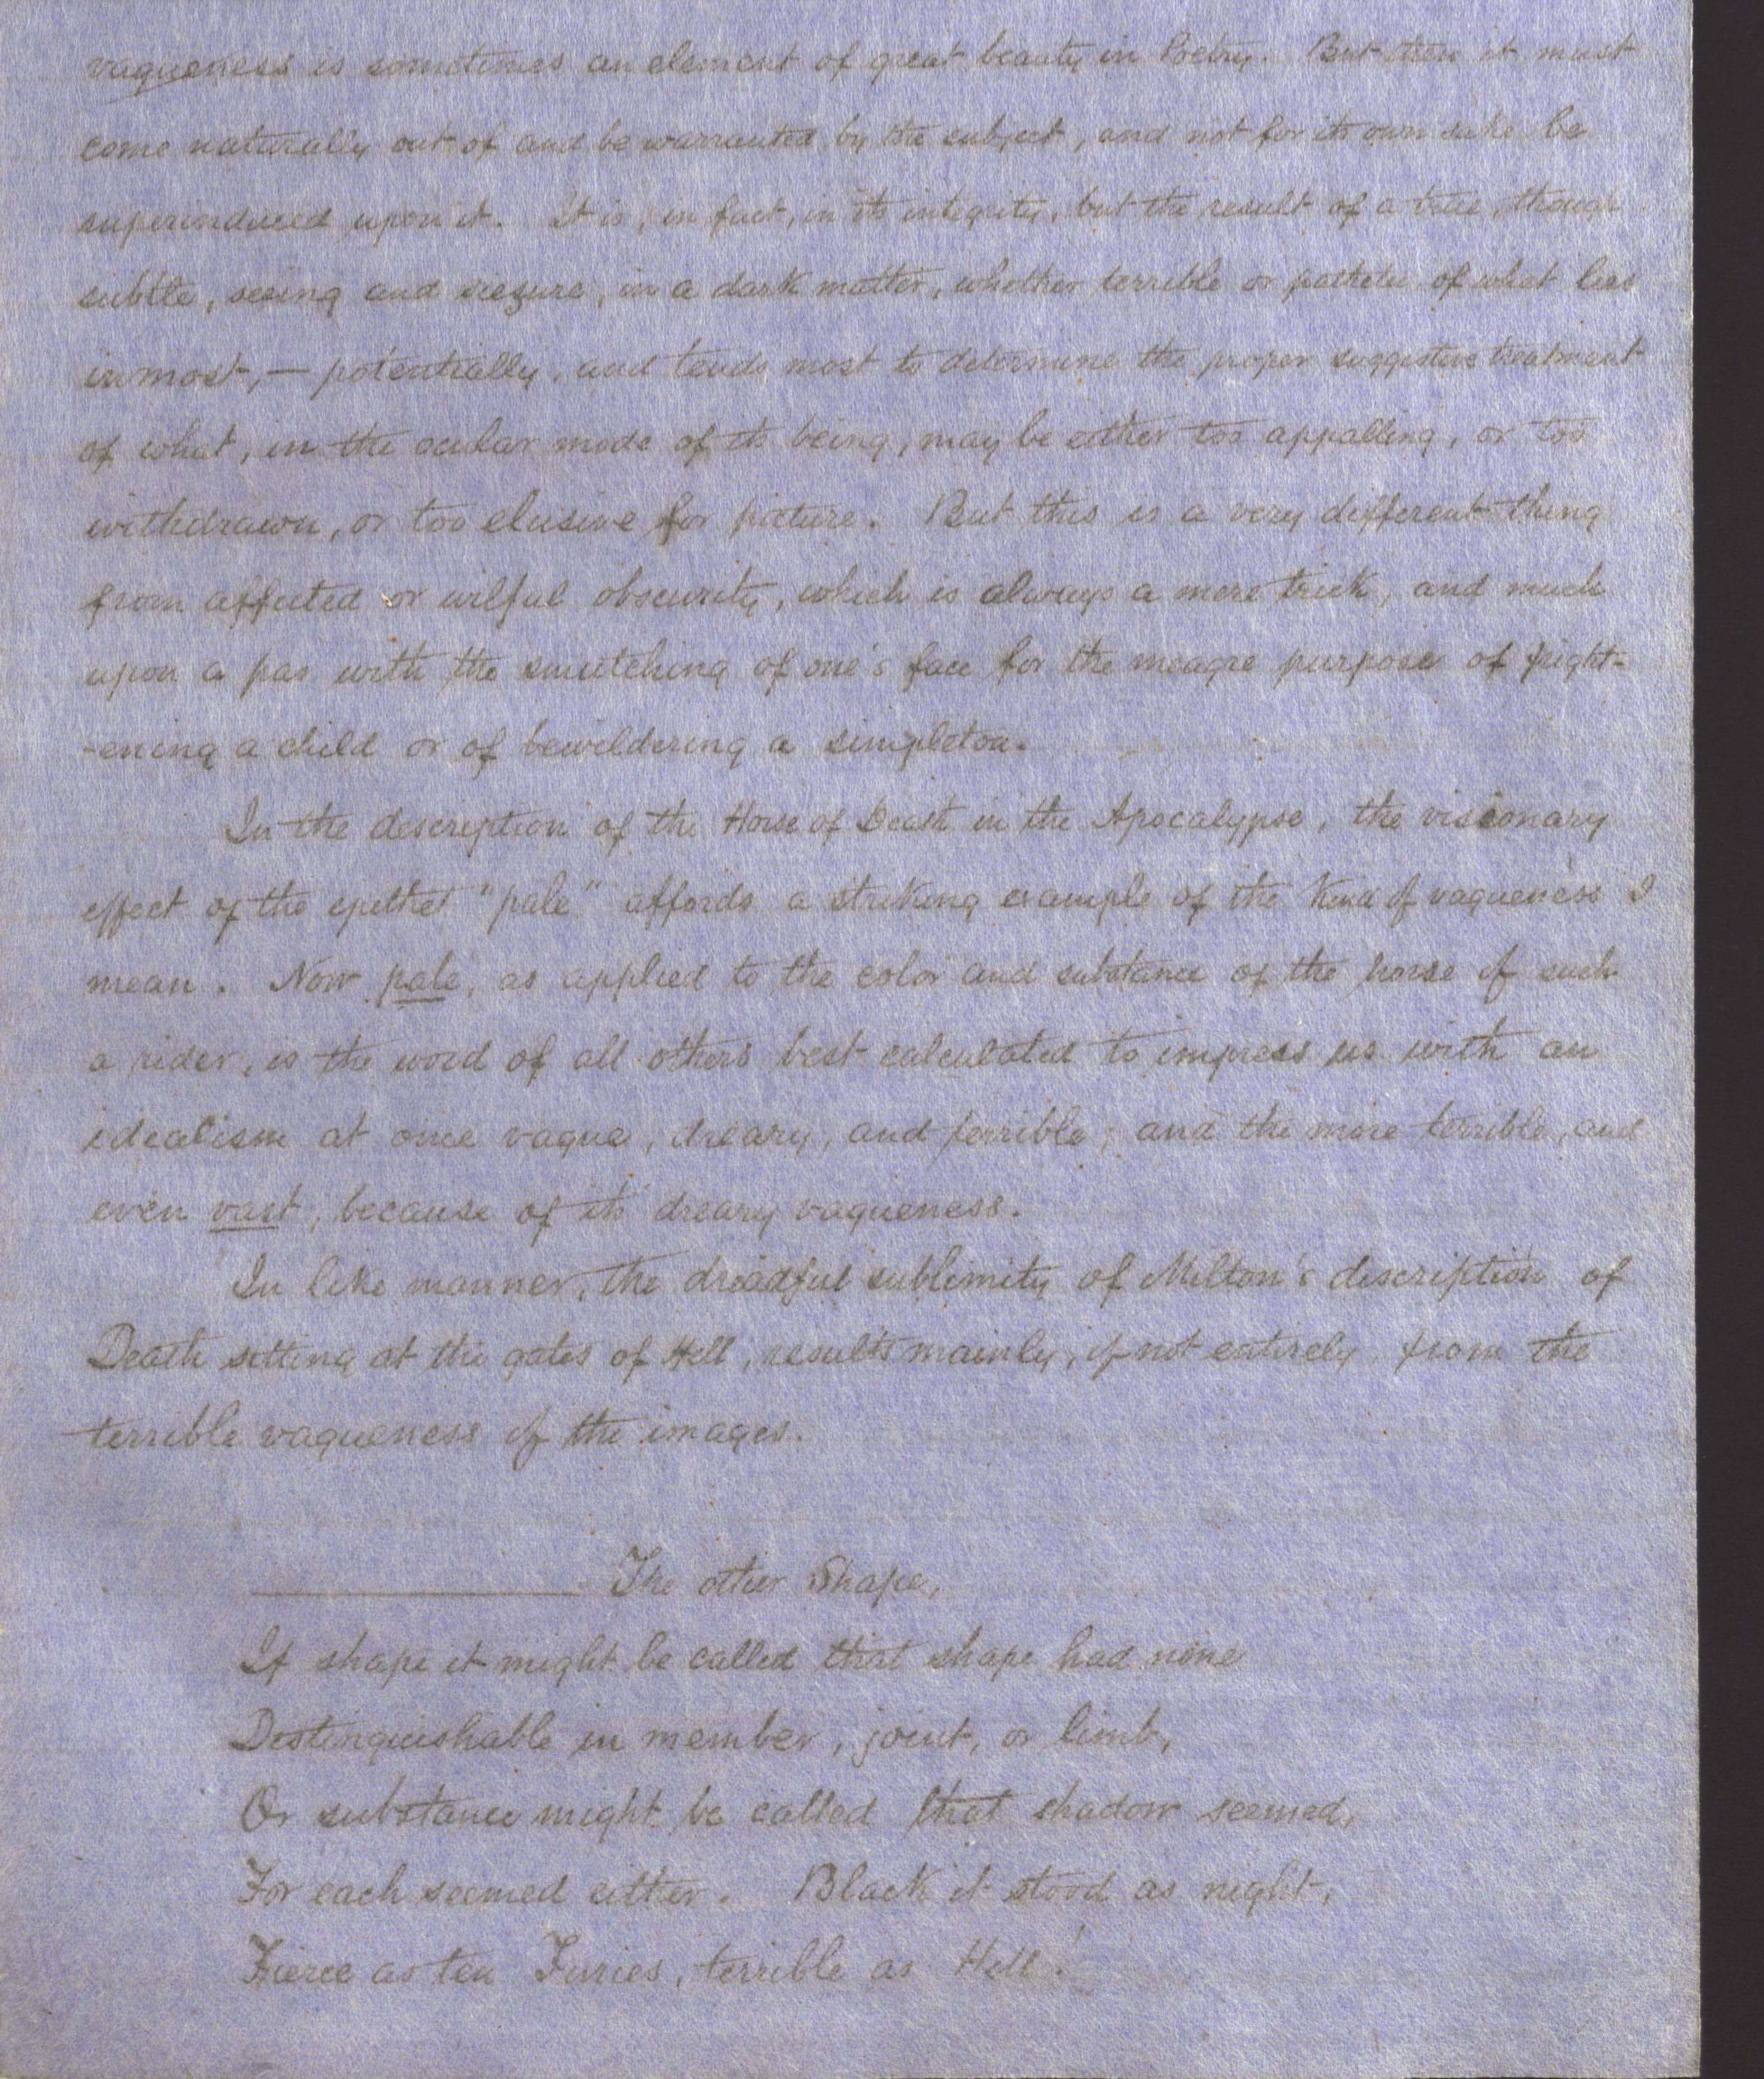 vagueness is sometimes an element of great beauty in Poetry. But then it must
come naturally out of and be warranted by the subject, and not for its own sake be
superinduced upon it. It is, in fact, in its integrity, but the result of a true, though
subtle, seeing and siezure, in a dark matter, whether terrible or pathetic, of what lies
inmost, — potentially, and tends most to determine the proper suggestive treatment
of what, in the ocular mode of its being, may be either too appalling, or too
withdrawn, or too elusive for picture. But this is a very different thing
from affected or wilful obscurity, which is always a mere trick, and much
upon a par with the smutching of one's face for the meagre purpose of fright-
-ening a child or of bewildering a simpleton.
In the description of the Horse of Death in the Apocalypse, the visionary
effect of the epithet "pale" affords a striking example of the kind of vagueness I
mean. Now pale, as applied to the color and substance of the horse of such
a rider, is the word of all others best calculated to impress us with an
idealism at once vague, dreary, and terrible; and the more terrible, and
even vast, because of its dreary vagueness.
In like manner, the dreadful sublimity of Milton's description of
Death sitting at the gates of Hell, results mainly, if not entirely, from the
terrible vagueness of the images.
The other Shape,
If shape it might be called that shape had none
Distinguishable in member, joint, or limb,
Or substance might be called that shadow seemed,
For each seemed either. Black it stood as night,
Fierce as ten Furies, terrible as Hell!